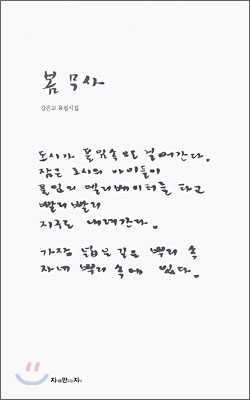 봄 무사
강은교 육필시집
도시가 풀잎속으로 걸어간다.
잠든 도시의 아이들이
풀잎의 엘리베이터를 타고
빨리 빨리
지구로 내려간다.
가장 넓은 길은 뿌리 속
자네 뿌리 속에 있다.
지식을만드는지식